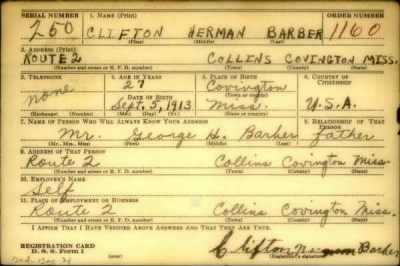 SERIAL NUMBER 1. NAME (Print) ORDER NUMBER
250 CLIFTON HERMAN BARBER 1160
(First) (Middle) (Last)
2. ADDRESS (Print)
ROUTE 2 COLLINS COVINGTON MISS.
(Number and street or R. F. D. number) (Town) (County) (State)
3. TELEPHONE 4. AGE IN YEARS 5. PLACE OF BIRTH 6. COUNTRY OF CITIZENSHIP
none 27 Covington
DATE OF BIRTH (Town or county)
Sept. 5, 1913 Miss. U.S.A.
(Exchange) (Number) (Mo.) (Day) (Yr.) (State or country)
7. NAME OF PERSON WHO WILL ALWAYS KNOW YOUR ADDRESS 8. RELATIONSHIP OF THAT PERSON
Mr. George H. Barber father
(Mr., Mrs., Miss) (First) (Middle) (Last)
9. ADDRESS OF THAT PERSON
Route 2 Collins Covington Miss.
(Number and street or R. F. D. number) (Town) (County) (State)
10. EMPLOYER'S NAME
Self
11. PLACE OF EMPLOYMENT OR BUSINESS
Route 2 Collins Covington Miss.
(Number and street or R. F. D. number) (Town) (County) (State)
I AFFIRM THAT I HAVE VERIFIED ABOVE ANSWERS AND THAT THEY ARE TRUE.
REGISTRATION CARD
D. S. S. Form 1 Clifton Barber
(Registrant's signature)